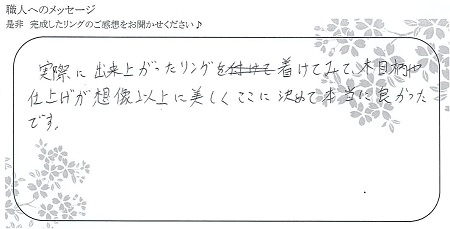 職人へのメッセージ
是非 完成したリングのご感想をお聞かせください♪
実際に出来上がったリングを付けて着けてみて、木目柄や
仕上げが想像以上に美しく、ここに決めて本当に良かった
です。